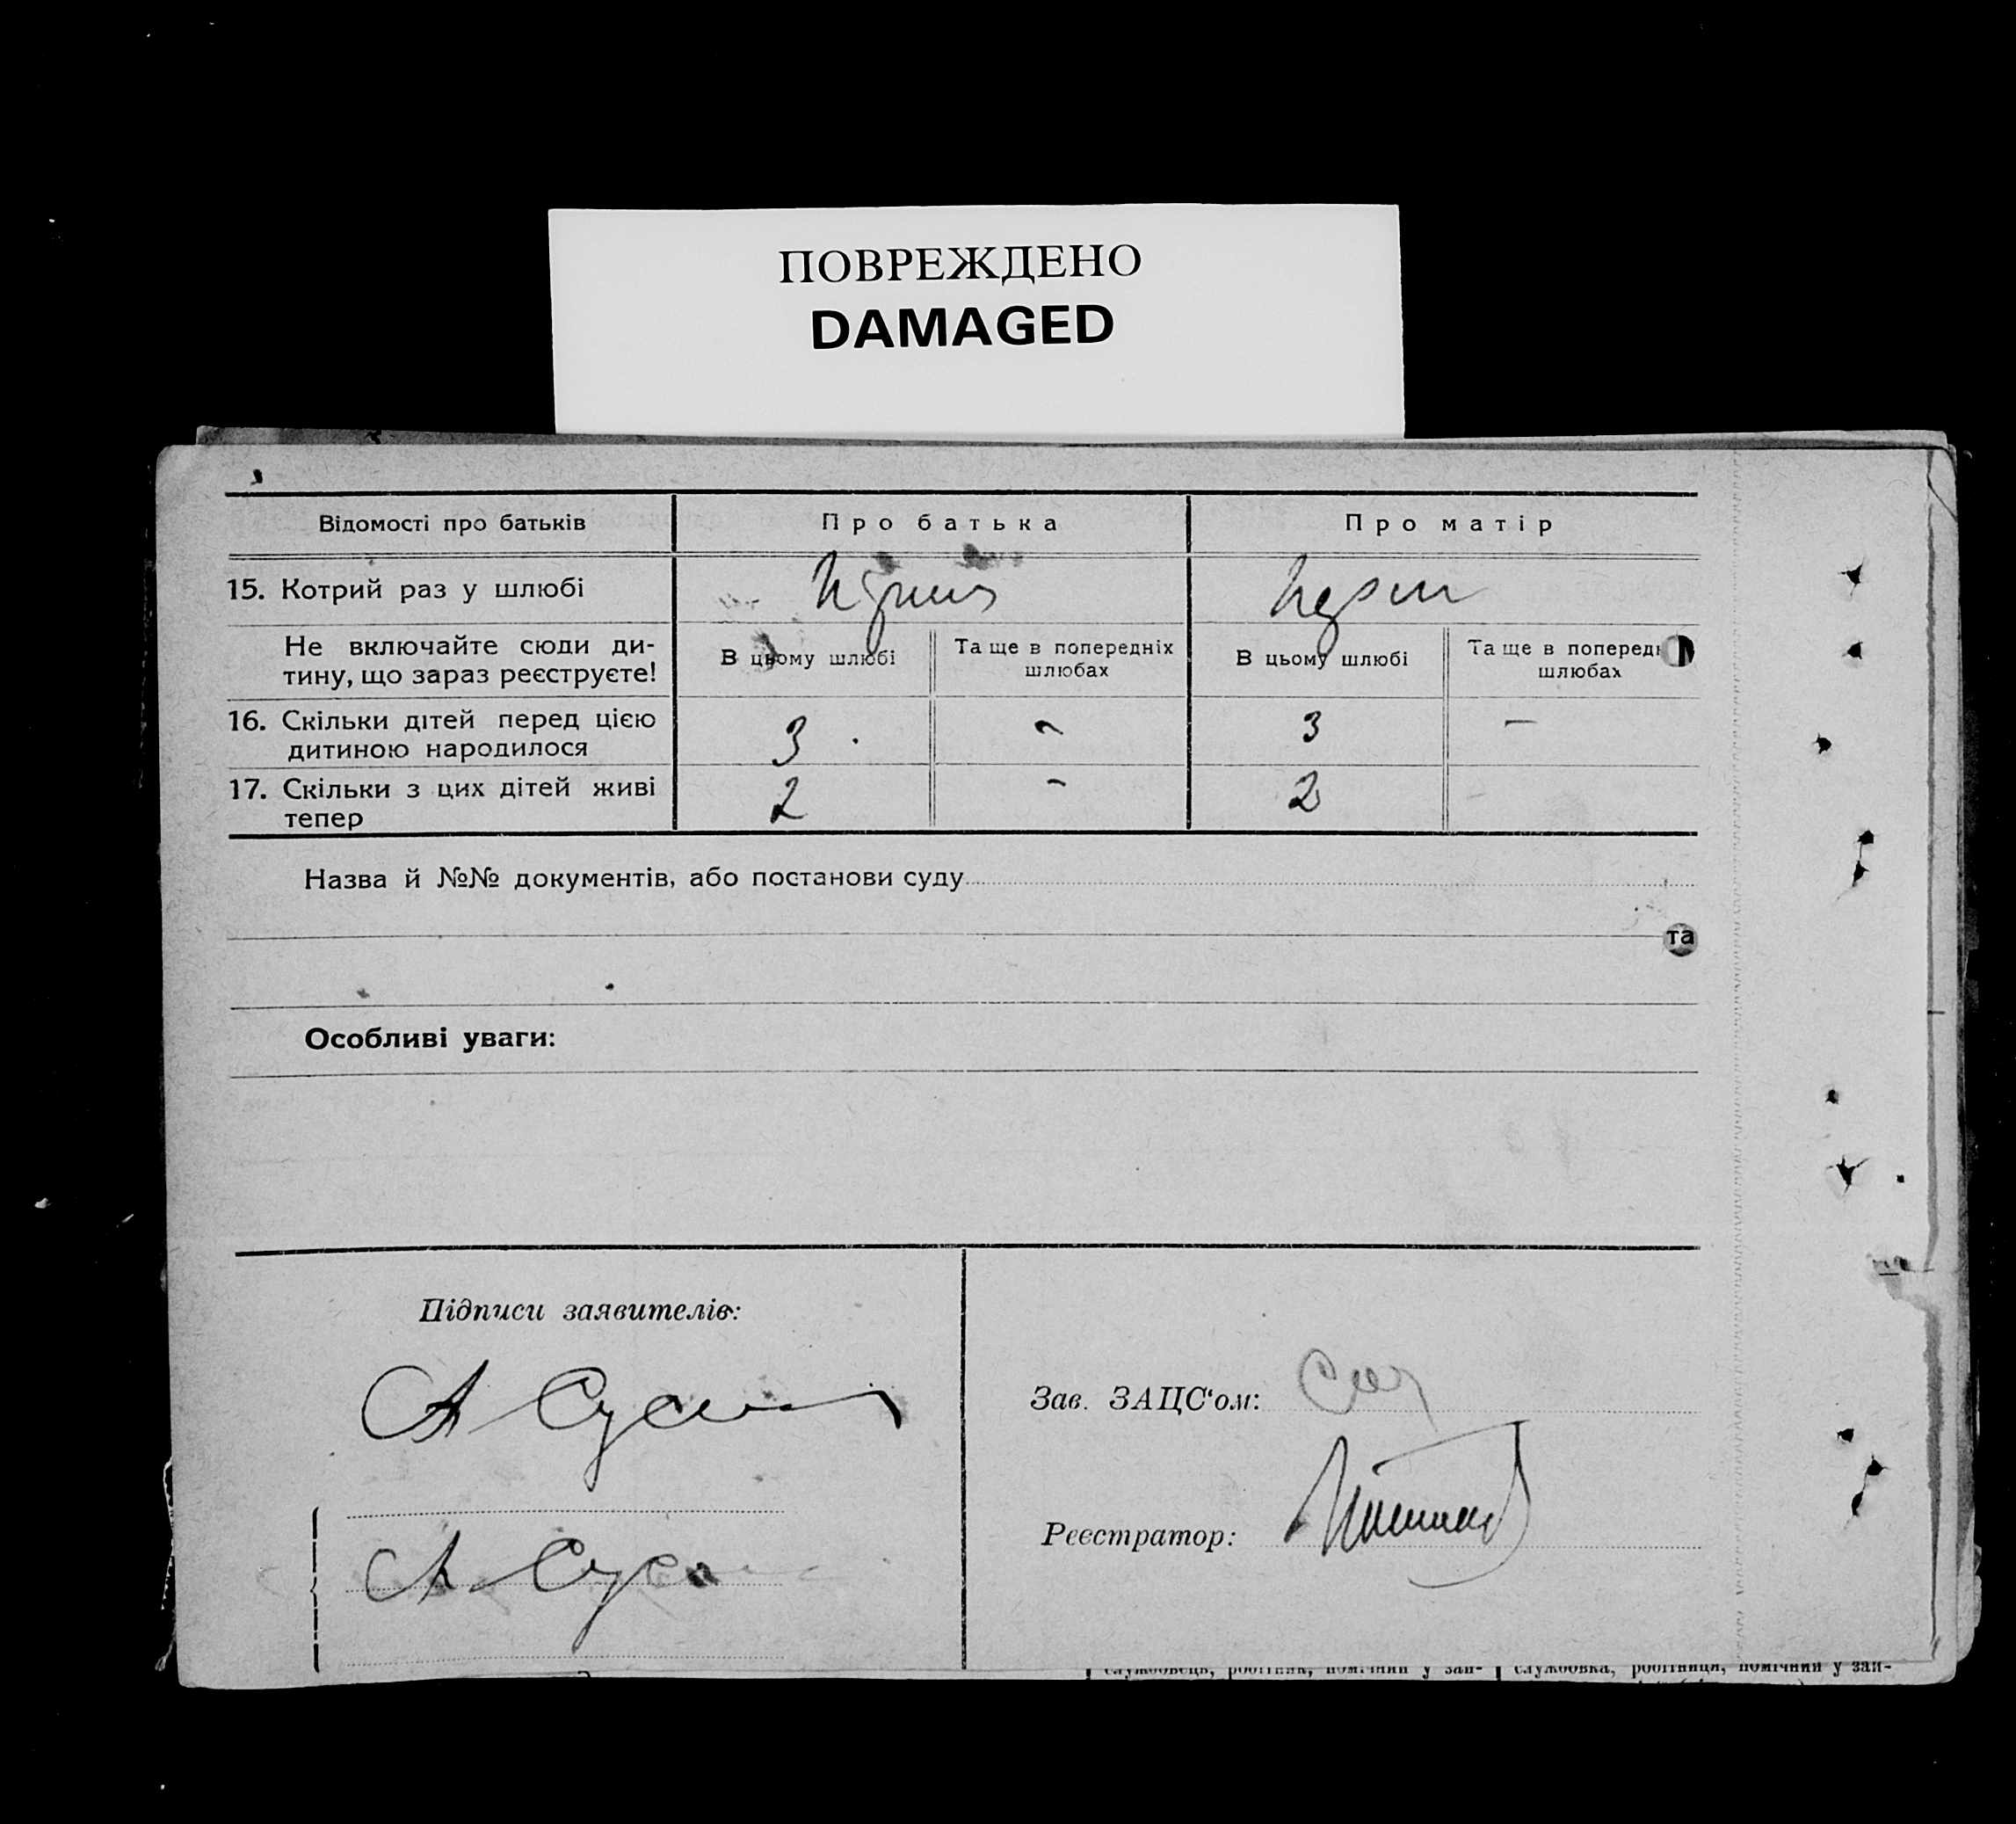 ПОВРЕЖДЕНО
DAMAGED
Відомості про батьків
Про батька
Про матір
15. Котрий раз у шлюбі
Не включайте сюди ди-
тину, що зараз реєструєте!
В цьому шлюбі
Та ще в попередніх
шлюбах
В цьому шлюбі
Та ще в
шлюбах
16. Скільки дітей перед цією
дитиною народилося
3 - 3 -
17. Скільки з цих дітей живі
тепер
2 - 2
Назва й №№ документів, або постанови суду
та
Особливі уваги:
Підписи заявителів:
Зав. ЗАЦС'ом:
Реєстратор:
службовець, робітник, помічний у зан-
службовка, робітниця, помічний у зан-